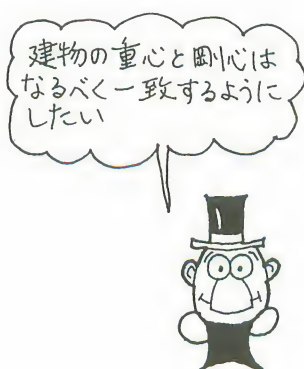 建物の重心と剛心は
なるべく一致するように
したい